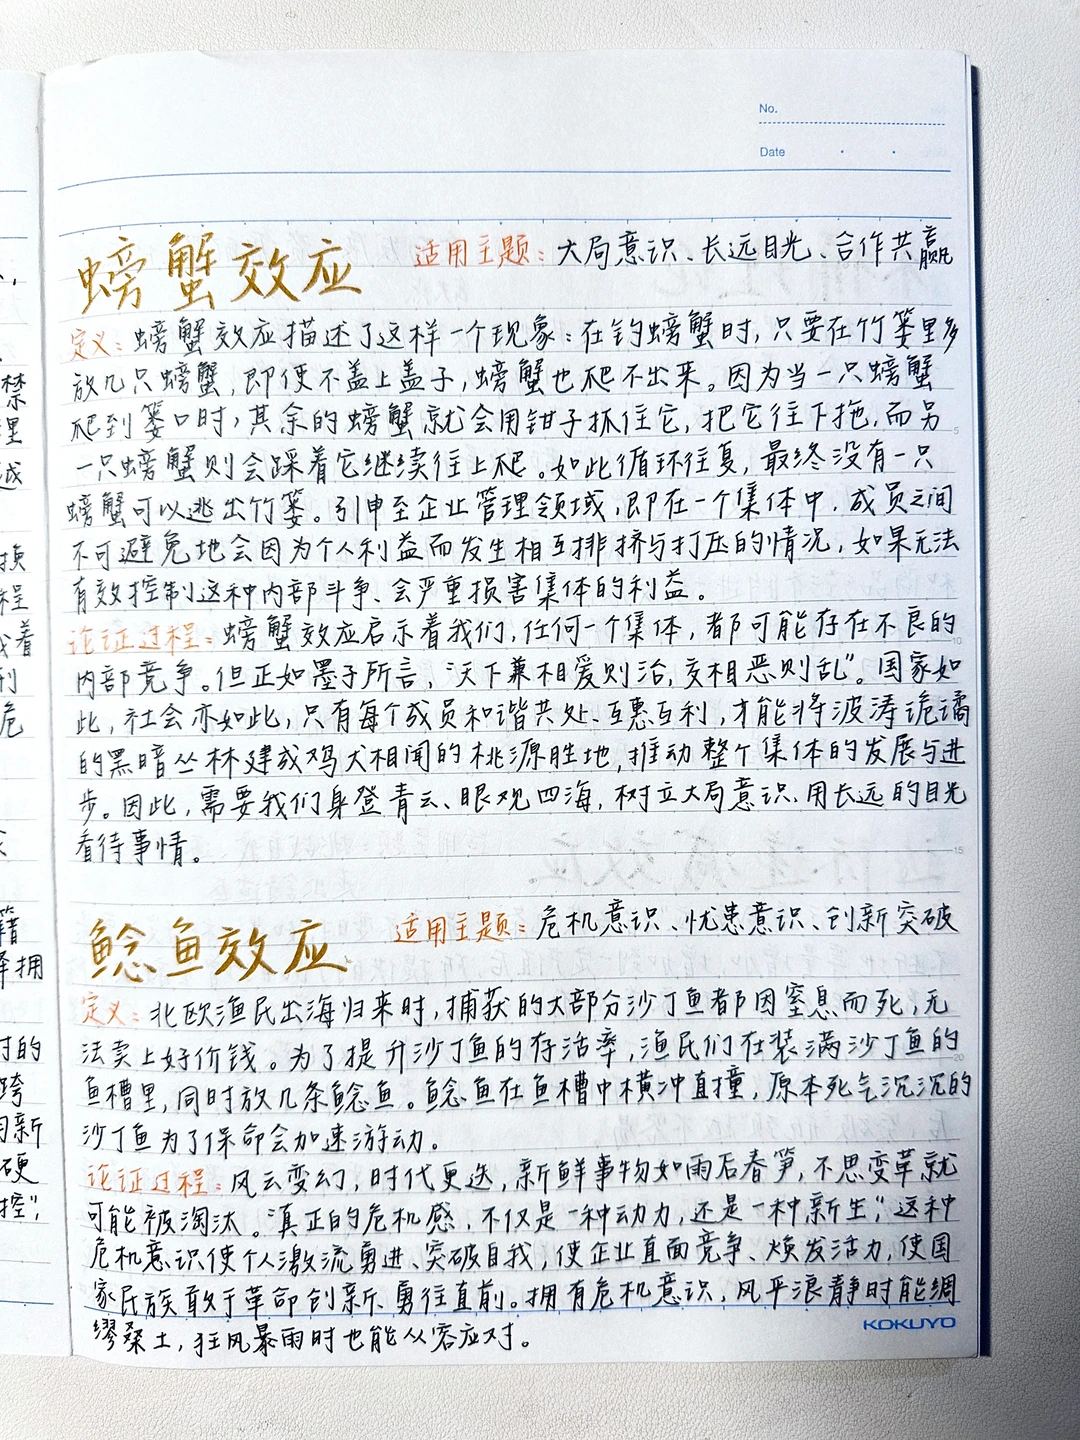 No.
Date
螃蟹效应 适用主题：大局意识、长远目光、合作共赢
定义：螃蟹效应描述了这样一个现象：在钓螃蟹时，只要在竹篓里多
放几只螃蟹，即使不盖上盖子，螃蟹也爬不出来。因为当一只螃蟹
爬到篓口时，其余的螃蟹就会用钳子抓住它，把它往下拖，而另
一只螃蟹则会踩着它继续往上爬。如此循环往复，最终没有一只
螃蟹可以逃出竹篓。引申至企业管理领域，即在一个集体中，成员之间
不可避免地会因为个人利益而发生相互排挤与打压的情况，如果无法
有效控制这种内部斗争、会严重损害集体的利益。
论证过程：螃蟹效应启示着我们，任何一个集体，都可能存在不良的
内部竞争。但正如墨子所言，“天下兼相爱则治，交相恶则乱”。国家如
此，社会亦如此，只有每个成员和谐共处、互惠互利，才能将波涛诡谲
的黑暗丛林建成鸡犬相闻的桃源胜地，推动整个集体的发展与进
步。因此，需要我们身登青云、眼观四海，树立大局意识、用长远的目光
看待事情。
鲶鱼效应 适用主题：危机意识、忧患意识、创新突破
定义：北欧渔民出海归来时，捕获的大部分沙丁鱼都因窒息而死，无
法卖上好价钱。为了提升沙丁鱼的存活率，渔民们在装满沙丁鱼的
鱼槽里，同时放几条鲶鱼。鲶鱼在鱼槽中横冲直撞，原本死气沉沉的
沙丁鱼为了保命会加速游动。
论证过程：风云变幻，时代更迭，新鲜事物如雨后春笋，不思变革就
可能被淘汰。“真正的危机感，不仅是一种动力，还是一种新生”，这种
危机意识使个人激流勇进、突破自我，使企业直面竞争、焕发活力，使国
家民族敢于革命创新、勇往直前。拥有危机意识，风平浪静时能绸
缪桑土，狂风暴雨时也能从容应对。
KOKUYO